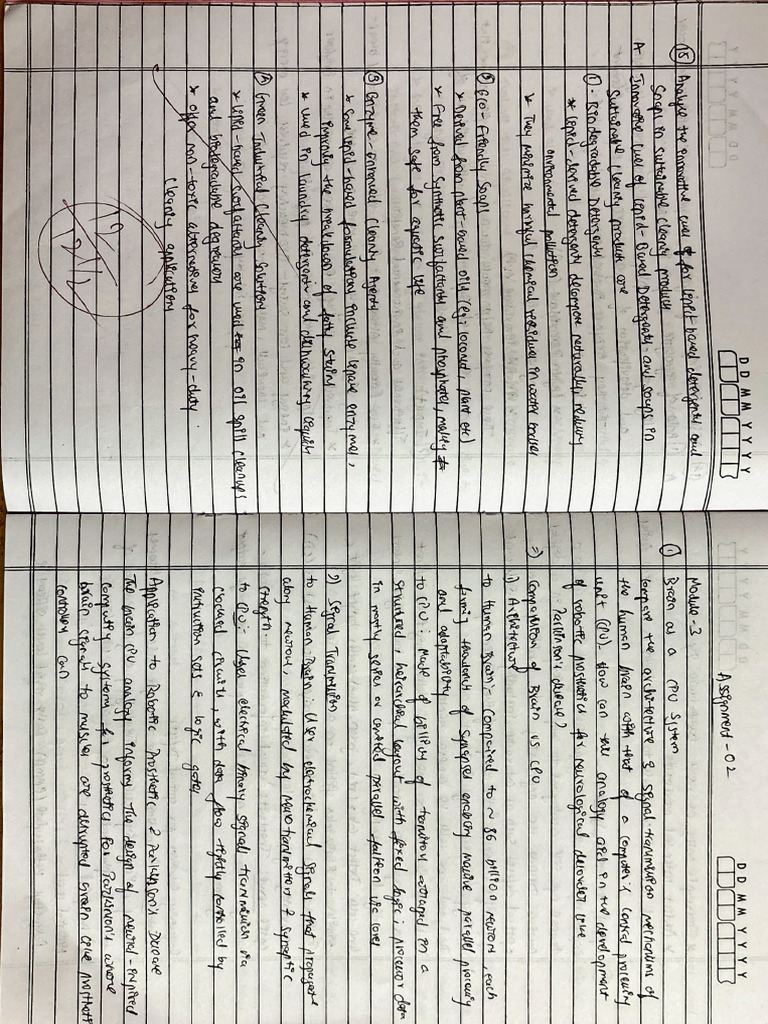 DD MM YYYY
15 Analyze the innovative uses of for lipid based detergents and
soaps in sustainable cleaning products
A Innovative uses of Lipid-Based Detergents and soaps in
sustainable cleaning products are
① Biodegradable Detergents
* Lipid-derived detergents decompose naturally, reducing
environmental pollution
* They minimize harmful chemical residues in water bodies
② Eco-Friendly Soaps
* Derived from plant-based oils (eg; coconut, plant etc)
* Free from synthetic surfactants and phosphates, making
them safe for aquatic life
③ Enzyme-enhanced Cleaning Agents
* Some lipid-based formulations include lipase enzymes,
improving the breakdown of fatty stains
* Used in laundry detergents and dishwashing liquids
④ Green Industrial Cleaning Solutions
* Lipid-based surfactants are used in oil spill cleanups
and biodegradable degreasers
* Offer non-toxic alternatives for heavy-duty
cleaning applications
12/12
DD MM YYYY
Assignment-02
Module-3
① Brain as a CPU System
Compare the architecture & signal transmission mechanisms of
the human brain with that of a computer's central processing
unit (CPU). How can this analogy aid in the development
of robotic prosthetics for neurological disorder like
Parkinson's disease?
=> Comparison of Brain vs CPU
1) Architecture
to Human Brain:- Compained to ~86 billion neurons, each
forming thousands of synapses enabling massive parallel processing
and adaptability
to CPU: Made of billions of transistors arranged in a
structured, heirarchical layout with fixed logic; processor data
in mostly series or limited parallel fashion via cores
2) Signal Transmission
to Human Brain: Uses electrochemical signals that propagate
along neurons, modulated by neurotransmitters & synaptic
strength.
to CPU: Uses electrical binary signals transmission via
clocked circuits, with data flow tightly controlled by
instruction sets & logic gates
Application to Robotic Prosthetic & Parkinson's Disease
The brain CPU analogy informs the design of neural-inspired
computing systems for prosthetics For Parkinson's where
brain signals to muscles are disrupted brain like prosthetic
controllers can